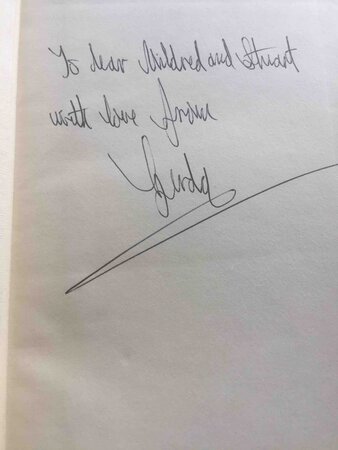 To dear Mildred and Stuart
with love from